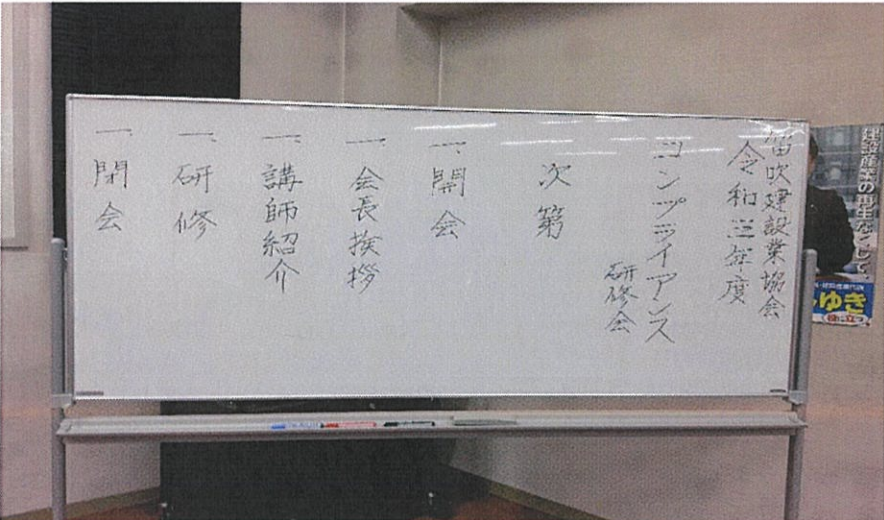 笛吹建設業協会
令和三年度
コンプライアンス
研修会
次第
一、開会
一、会長挨拶
一、講師紹介
一、研修
一、閉会
建設産業の再生なくして、
ゆき